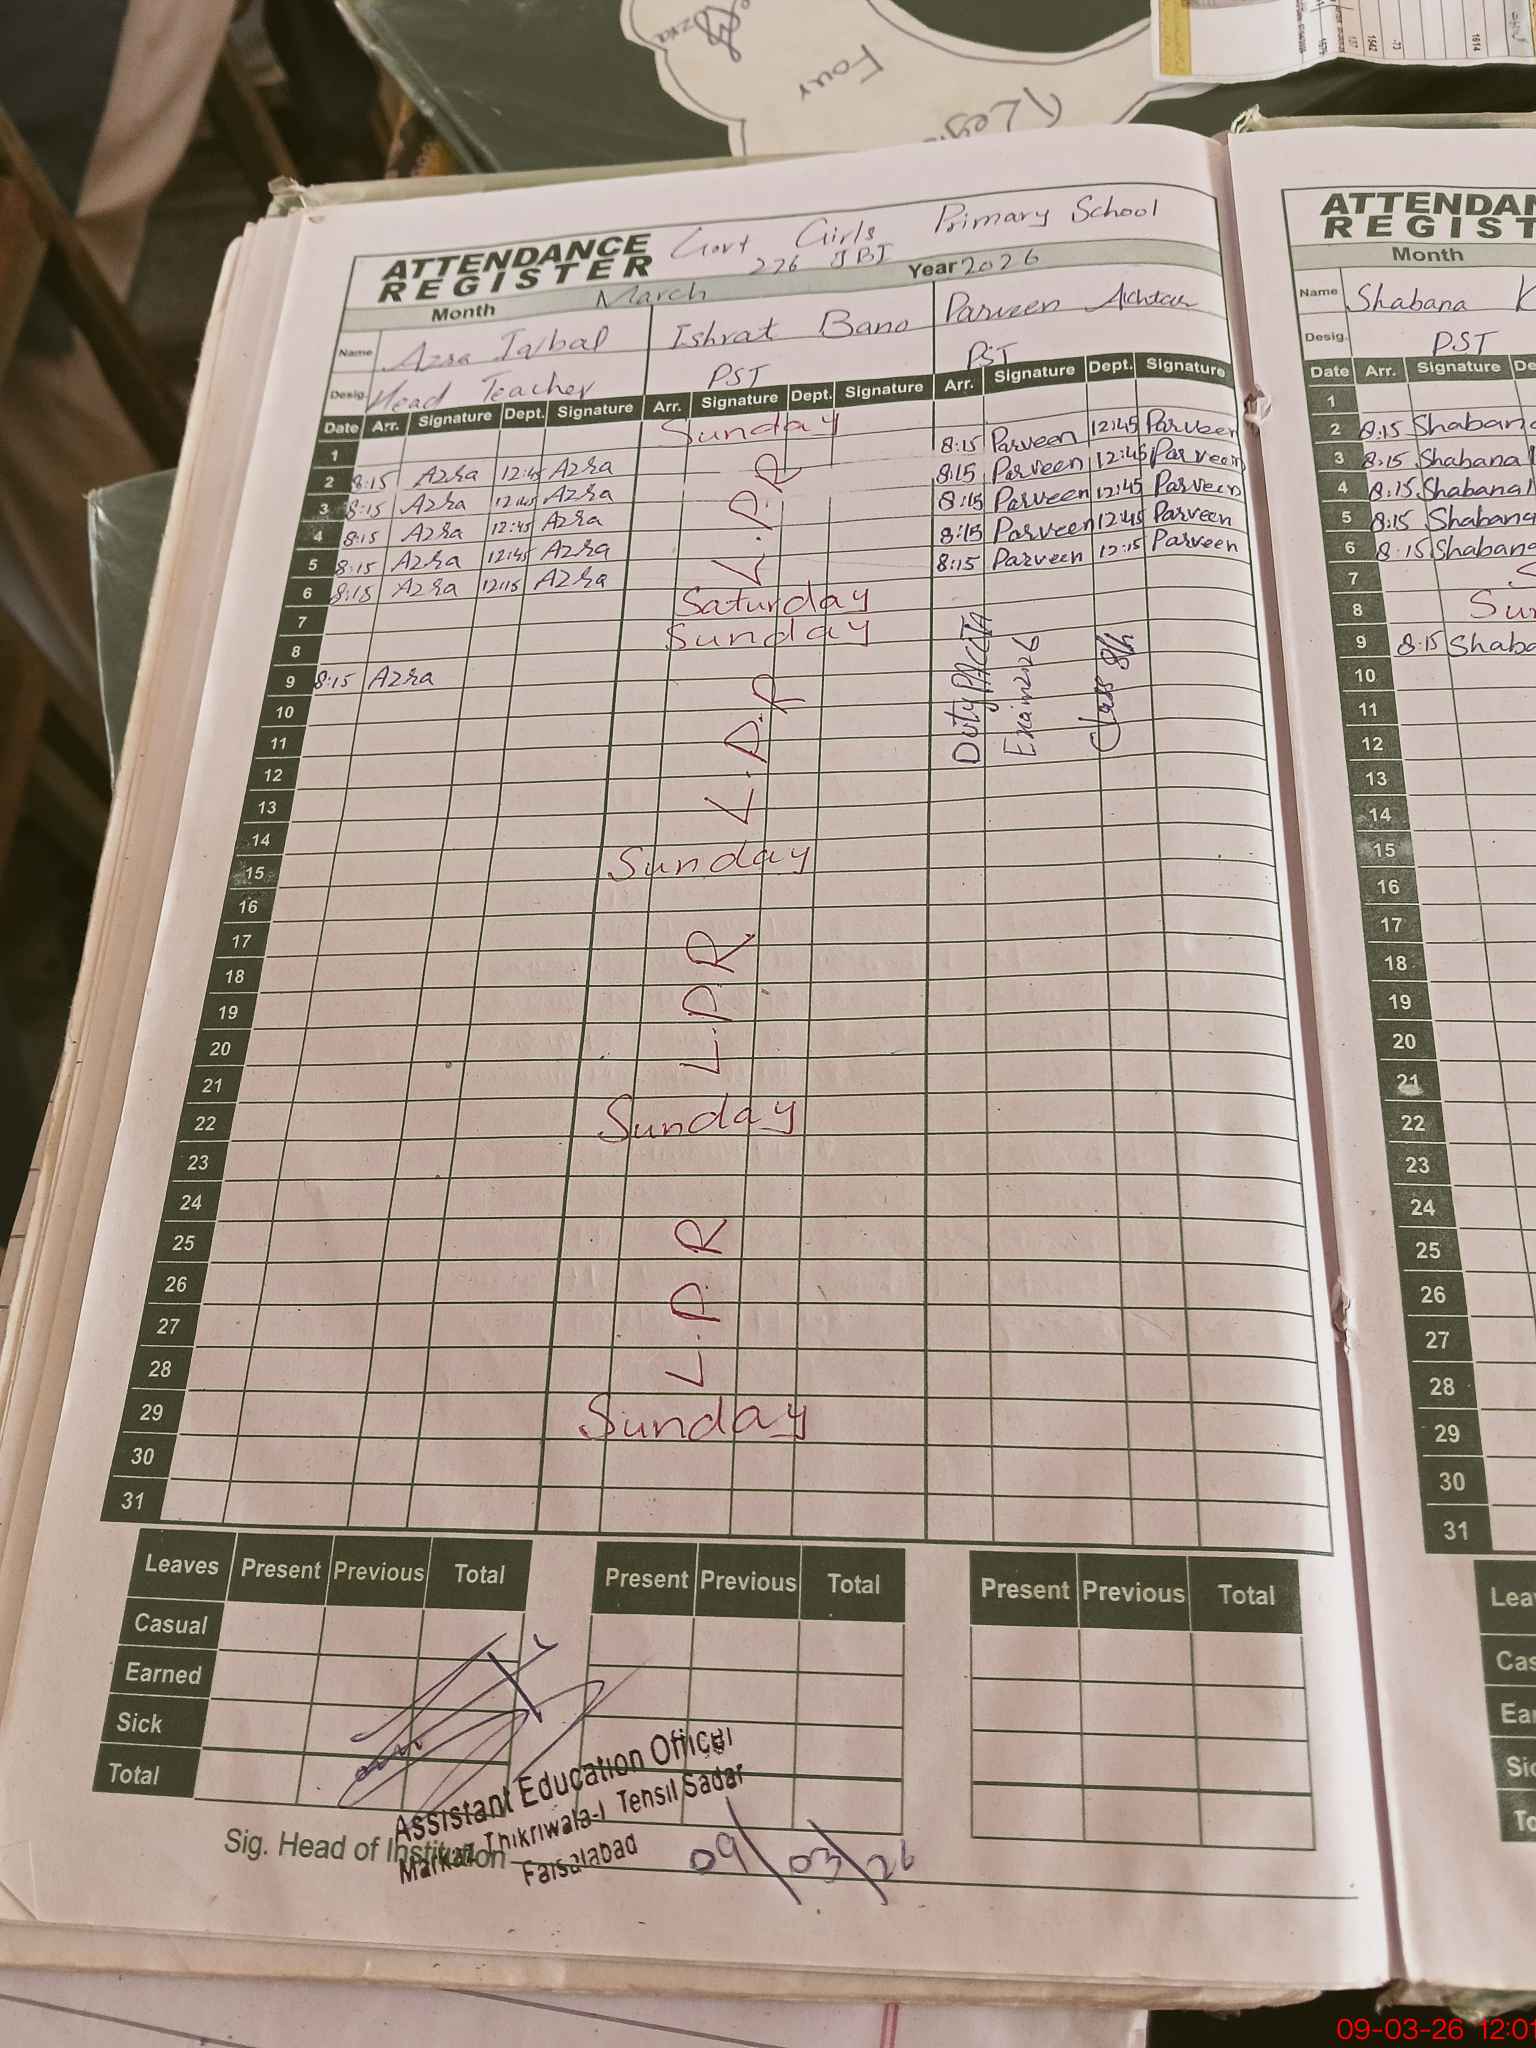 Four
ATTENDANCE
REGISTER
Govt Girls Primary School
226 JBI
Month March Year 2026
Name Azra Iqbal Ishrat Bano Parveen Achtar
Desig. Head Teacher PST PST
Date Arr. Signature Dept. Signature Arr. Signature Dept. Signature Arr. Signature Dept. Signature
1 Sunday
2 8:15 Azra 12:45 Azra 8:15 Parveen 12:45 Parveen
3 8:15 Azra 12:45 Azra 8:15 Parveen 12:45 Parveen
4 8:15 Azra 12:45 Azra 8:15 Parveen 12:45 Parveen
5 8:15 Azra 12:45 Azra 8:15 Parveen 12:45 Parveen
6 8:15 Azra 12:15 Azra 8:15 Parveen 12:15 Parveen
L.P.R
7 Saturday
8 Sunday
9 8:15 Azra
Duty PACCTA
Exam 2026
Class 8th
10
11
12
L.P.R
13
14
15 Sunday
16
17
18
L.P.R
19
20
21
22 Sunday
23
24
25
L.P.R
26
27
28
29 Sunday
30
31
Leaves Present Previous Total Present Previous Total Present Previous Total
Casual
Earned
Sick
Total
Sig. Head of Institution
Assistant Education Officer
Markaz Thikriwala-I Tehsil Sadar
Faisalabad
09/03/26
REGIST
Month
Name Shabana
Desig. PST
Date Arr. Signature
1
2 8:15 Shabana
3 8:15 Shabana
4 8:15 Shabana
5 8:15 Shabana
6 8:15 Shabana
7 S
8 Su
9 8:15 Shaba
10
11
12
13
14
15
16
17
18
19
20
21
22
23
24
25
26
27
28
29
30
31
Lea
Cas
Ear
Sic
To
09-03-26 12:01